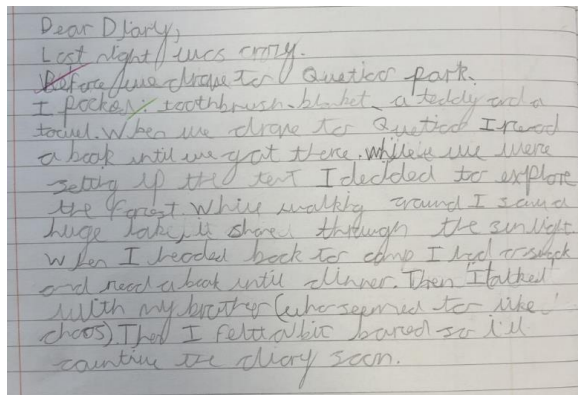 Dear Diary,
Last night was crazy.
Before we drove to Quetico park.
I packed: toothbrush, blanket, a teddy and a
towel. When we drove to Quetico I read
a book until we got there. While we were
setting up the tent I decided to explore
the forest. While walking around I saw a
huge lake, it shone through the sunlight
When I headed back to camp I had a snack
and read a book until dinner. Then I talked
with my brother (who seemed to like
chaos). Then I felt a bit bored so i'll
countine the diary soon.